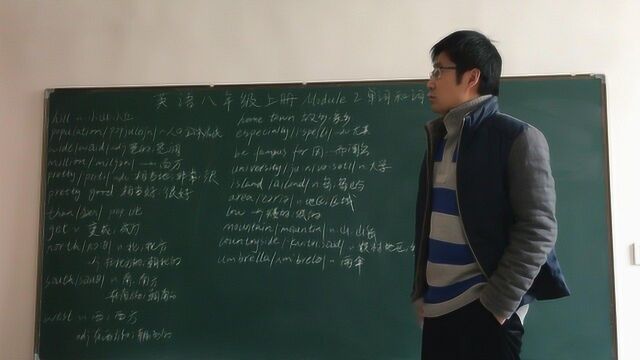 英语八年级上册 Module 2 单词和词
hill n 小山 小丘
population /ˌpɒpjuˈleɪʃn/ n 人口
wide /waɪd/ adj
million /ˈmɪljən/ 百万
pretty /ˈprɪti/ adv 相当地, 非常, 很
pretty good 相当好 很好
than /ðən/ prep 比
get v 变成, 成为
north /nɔːθ/ n 北; 北方
south /saʊθ/ n 南; 南方
west n 西; 西方
home town 故乡; 家乡
especially /ɪˈspeʃəli/ adv 尤其
be famous for 因…而闻名
university /ˌjuːnɪˈvɜːsəti/ n 大学
island /ˈaɪlənd/ n 岛; 岛屿
area /ˈeəriə/ n 地区; 区域
low adj 矮的; 低的
mountain /ˈmaʊntɪn/ n 山; 山岳
countryside /ˈkʌntrisaɪd/ n 农村地区
umbrella /ʌmˈbrelə/ n 雨伞